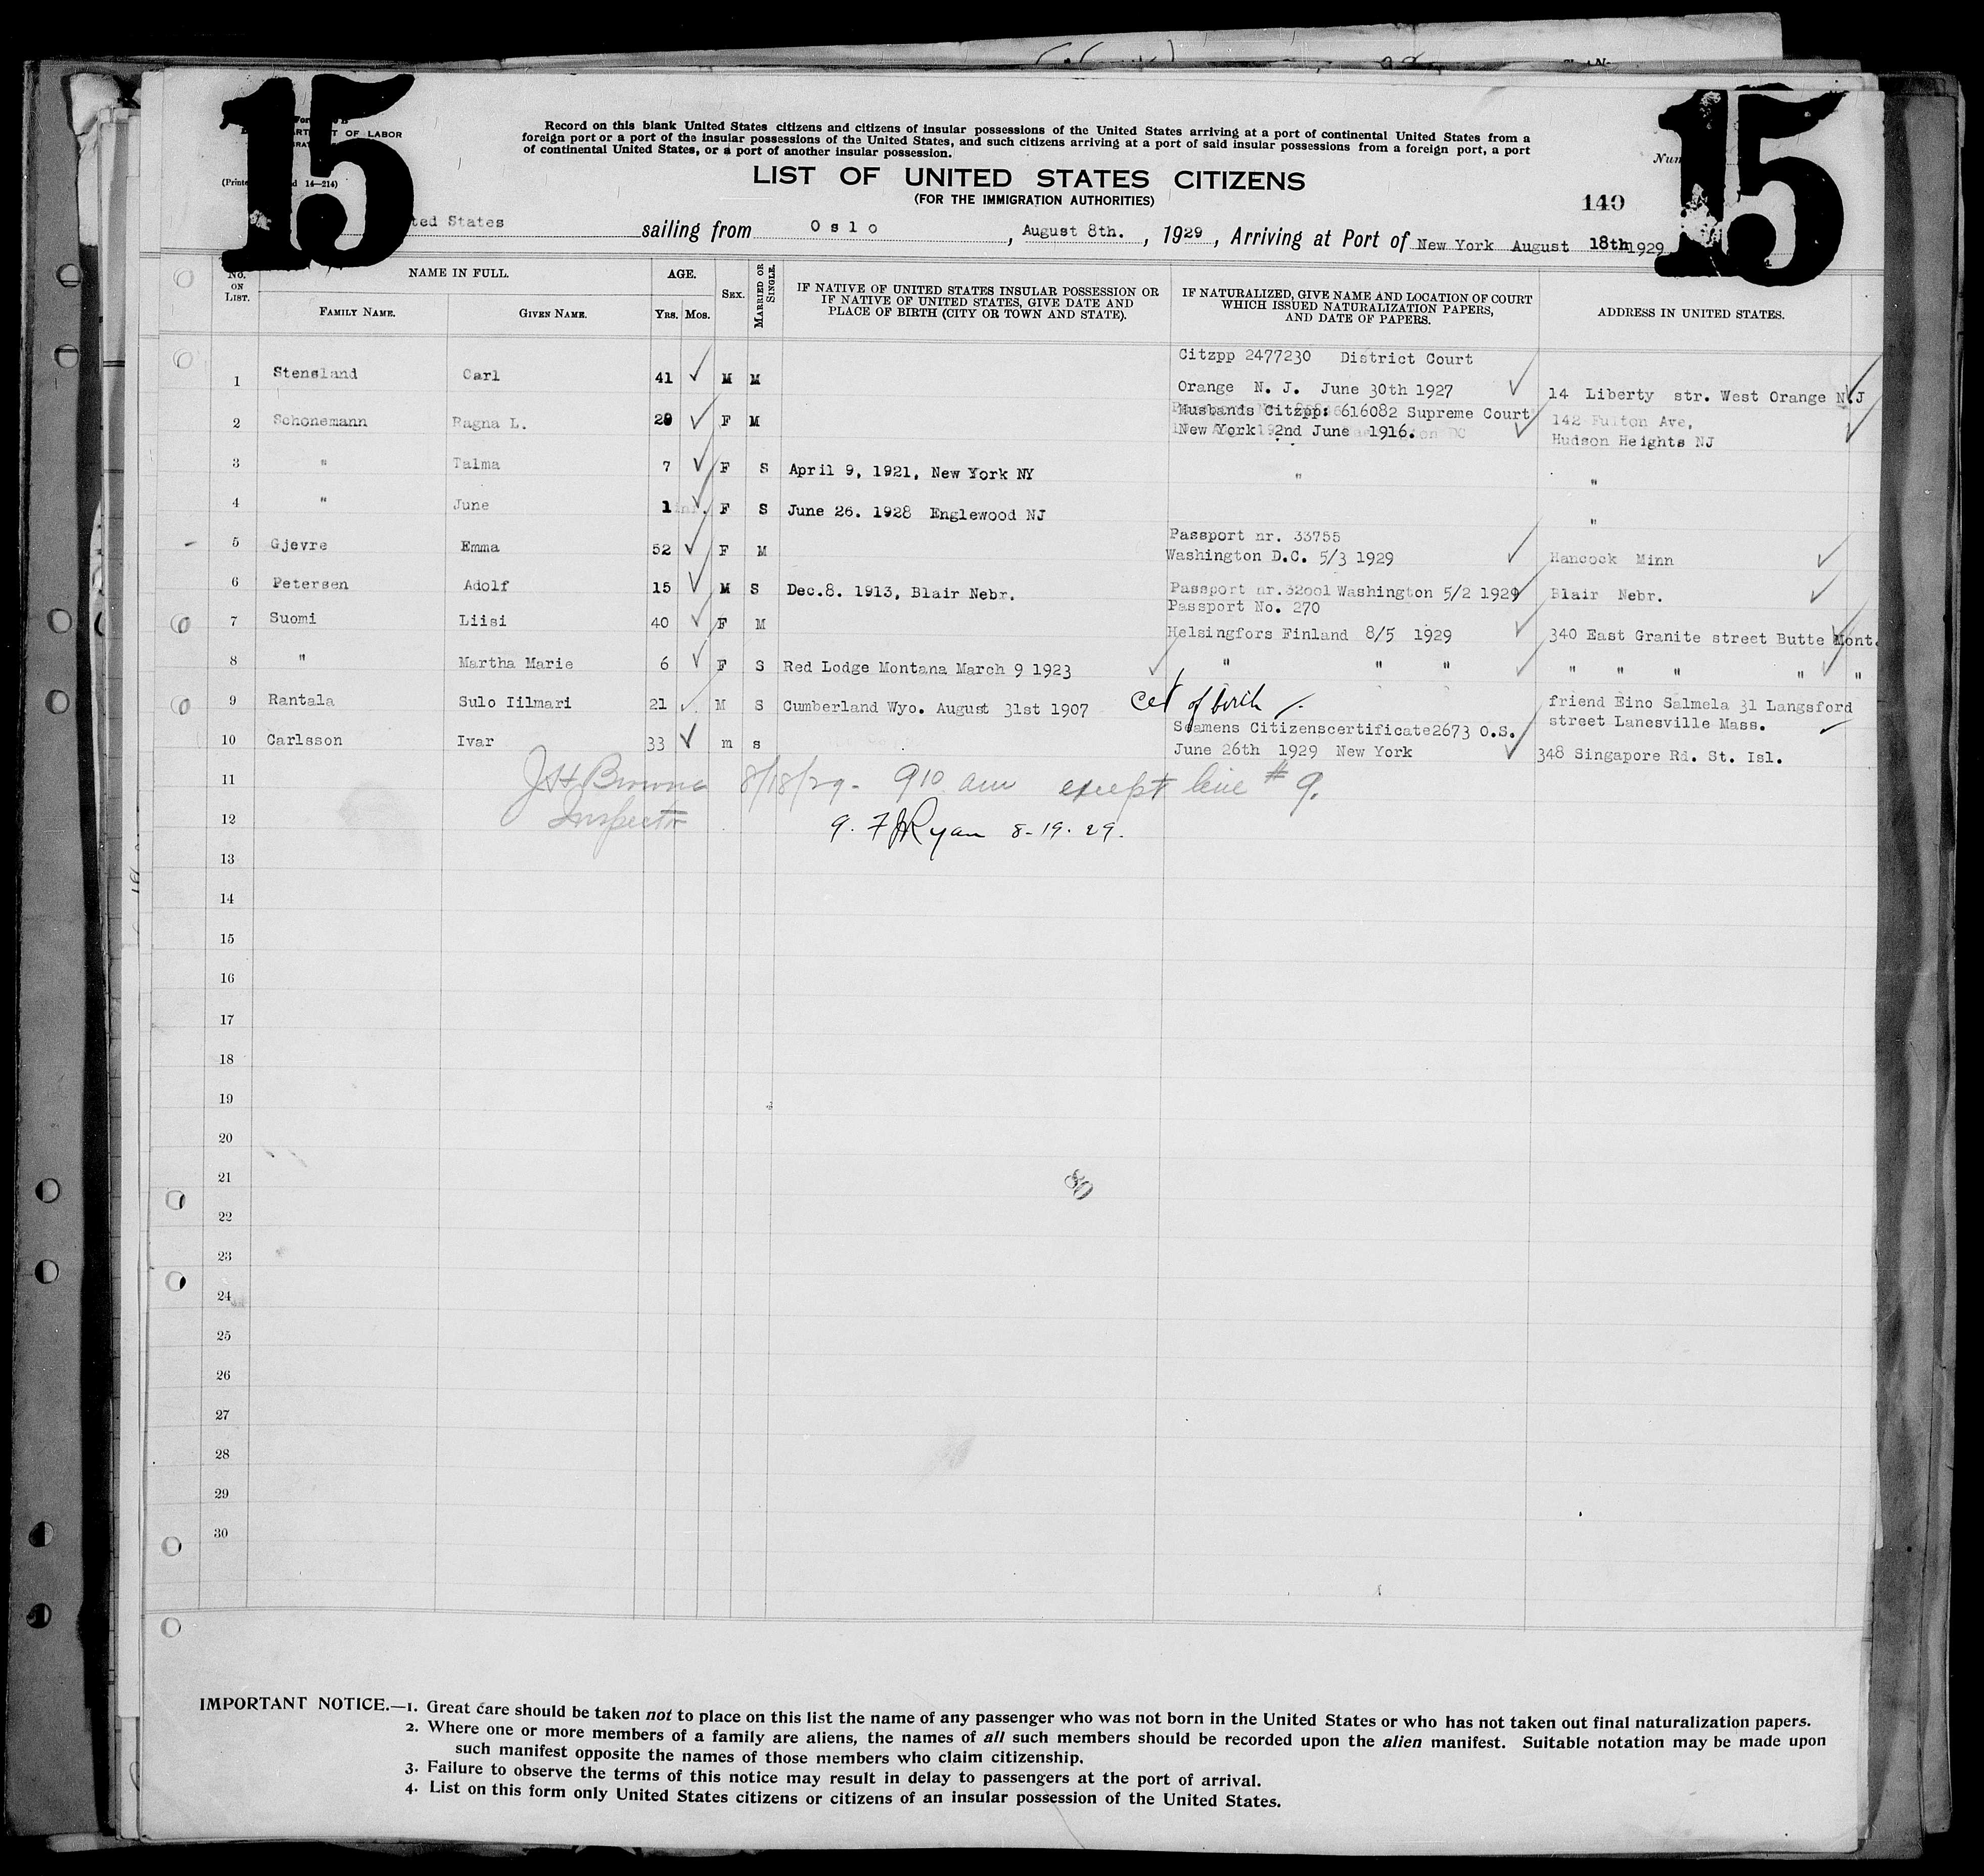 15
15
OF LABOR
(Printe d 14—214)
Record on this blank United States citizens and citizens of insular possessions of the United States arriving at a port of continental United States from a
foreign port or a port of the insular possessions of the United States, and such citizens arriving at a port of said insular possessions from a foreign port, a port
of continental United States, or a port of another insular possession.
LIST OF UNITED STATES CITIZENS
(FOR THE IMMIGRATION AUTHORITIES)
140
ted States sailing from Oslo, August 8th., 1929, Arriving at Port of New York August 18th 1929
No. ON LIST.
NAME IN FULL.
FAMILY NAME. GIVEN NAME.
AGE.
Yrs. Mos.
SEX.
MARRIED OR SINGLE.
IF NATIVE OF UNITED STATES INSULAR POSSESSION OR
IF NATIVE OF UNITED STATES, GIVE DATE AND
PLACE OF BIRTH (CITY OR TOWN AND STATE).
IF NATURALIZED, GIVE NAME AND LOCATION OF COURT
WHICH ISSUED NATURALIZATION PAPERS,
AND DATE OF PAPERS.
ADDRESS IN UNITED STATES.
Citzpp 2477230 District Court
1 Stensland Carl 41 ✓ M M Orange N. J. June 30th 1927 ✓ 14 Liberty str. West Orange N.J
Husbands Citzpp: 616082 Supreme Court 142 Fulton Ave,
2 Schonemann Ragna L. 29 ✓ F M New York 2nd June 1916. ✓ Hudson Heights NJ
3 " Talma 7 ✓ F S April 9, 1921, New York NY " "
4 " June 1 ✓ F S June 26. 1928 Englewood NJ "
Passport nr. 33755
5 Gjevre Emma 52 ✓ F M Washington D.C. 5/3 1929 ✓ Hancock Minn ✓
6 Petersen Adolf 15 ✓ M S Dec.8. 1913, Blair Nebr. Passport nr.32001 Washington 5/2 1929 ✓ Blair Nebr. ✓
Passport No. 270
7 Suomi Liisi 40 ✓ F M Helsingfors Finland 8/5 1929 ✓ 340 East Granite street Butte Mont.
8 " Martha Marie 6 ✓ F S Red Lodge Montana March 9 1923 ✓ " " " ✓ " " " " "
9 Rantala Sulo Iilmari 21 ✓ M S Cumberland Wyo. August 31st 1907 Cet of birth friend Eino Salmela 31 Langsford
street Lanesville Mass.
Seamens Citizenscertificate2673 O.S.
10 Carlsson Ivar 33 ✓ m s June 26th 1929 New York ✓ 348 Singapore Rd. St. Isl.
11 JH Browne 8/18/29 - 9 10 am except line # 9.
Inspector
12 9. F J Ryan 8-19-29.
13
14
15
16
17
18
19
20
21
80
22
23
24
25
26
27
28
29
30
IMPORTANT NOTICE.—1. Great care should be taken not to place on this list the name of any passenger who was not born in the United States or who has not taken out final naturalization papers.
2. Where one or more members of a family are aliens, the names of all such members should be recorded upon the alien manifest. Suitable notation may be made upon
such manifest opposite the names of those members who claim citizenship.
3. Failure to observe the terms of this notice may result in delay to passengers at the port of arrival.
4. List on this form only United States citizens or citizens of an insular possession of the United States.